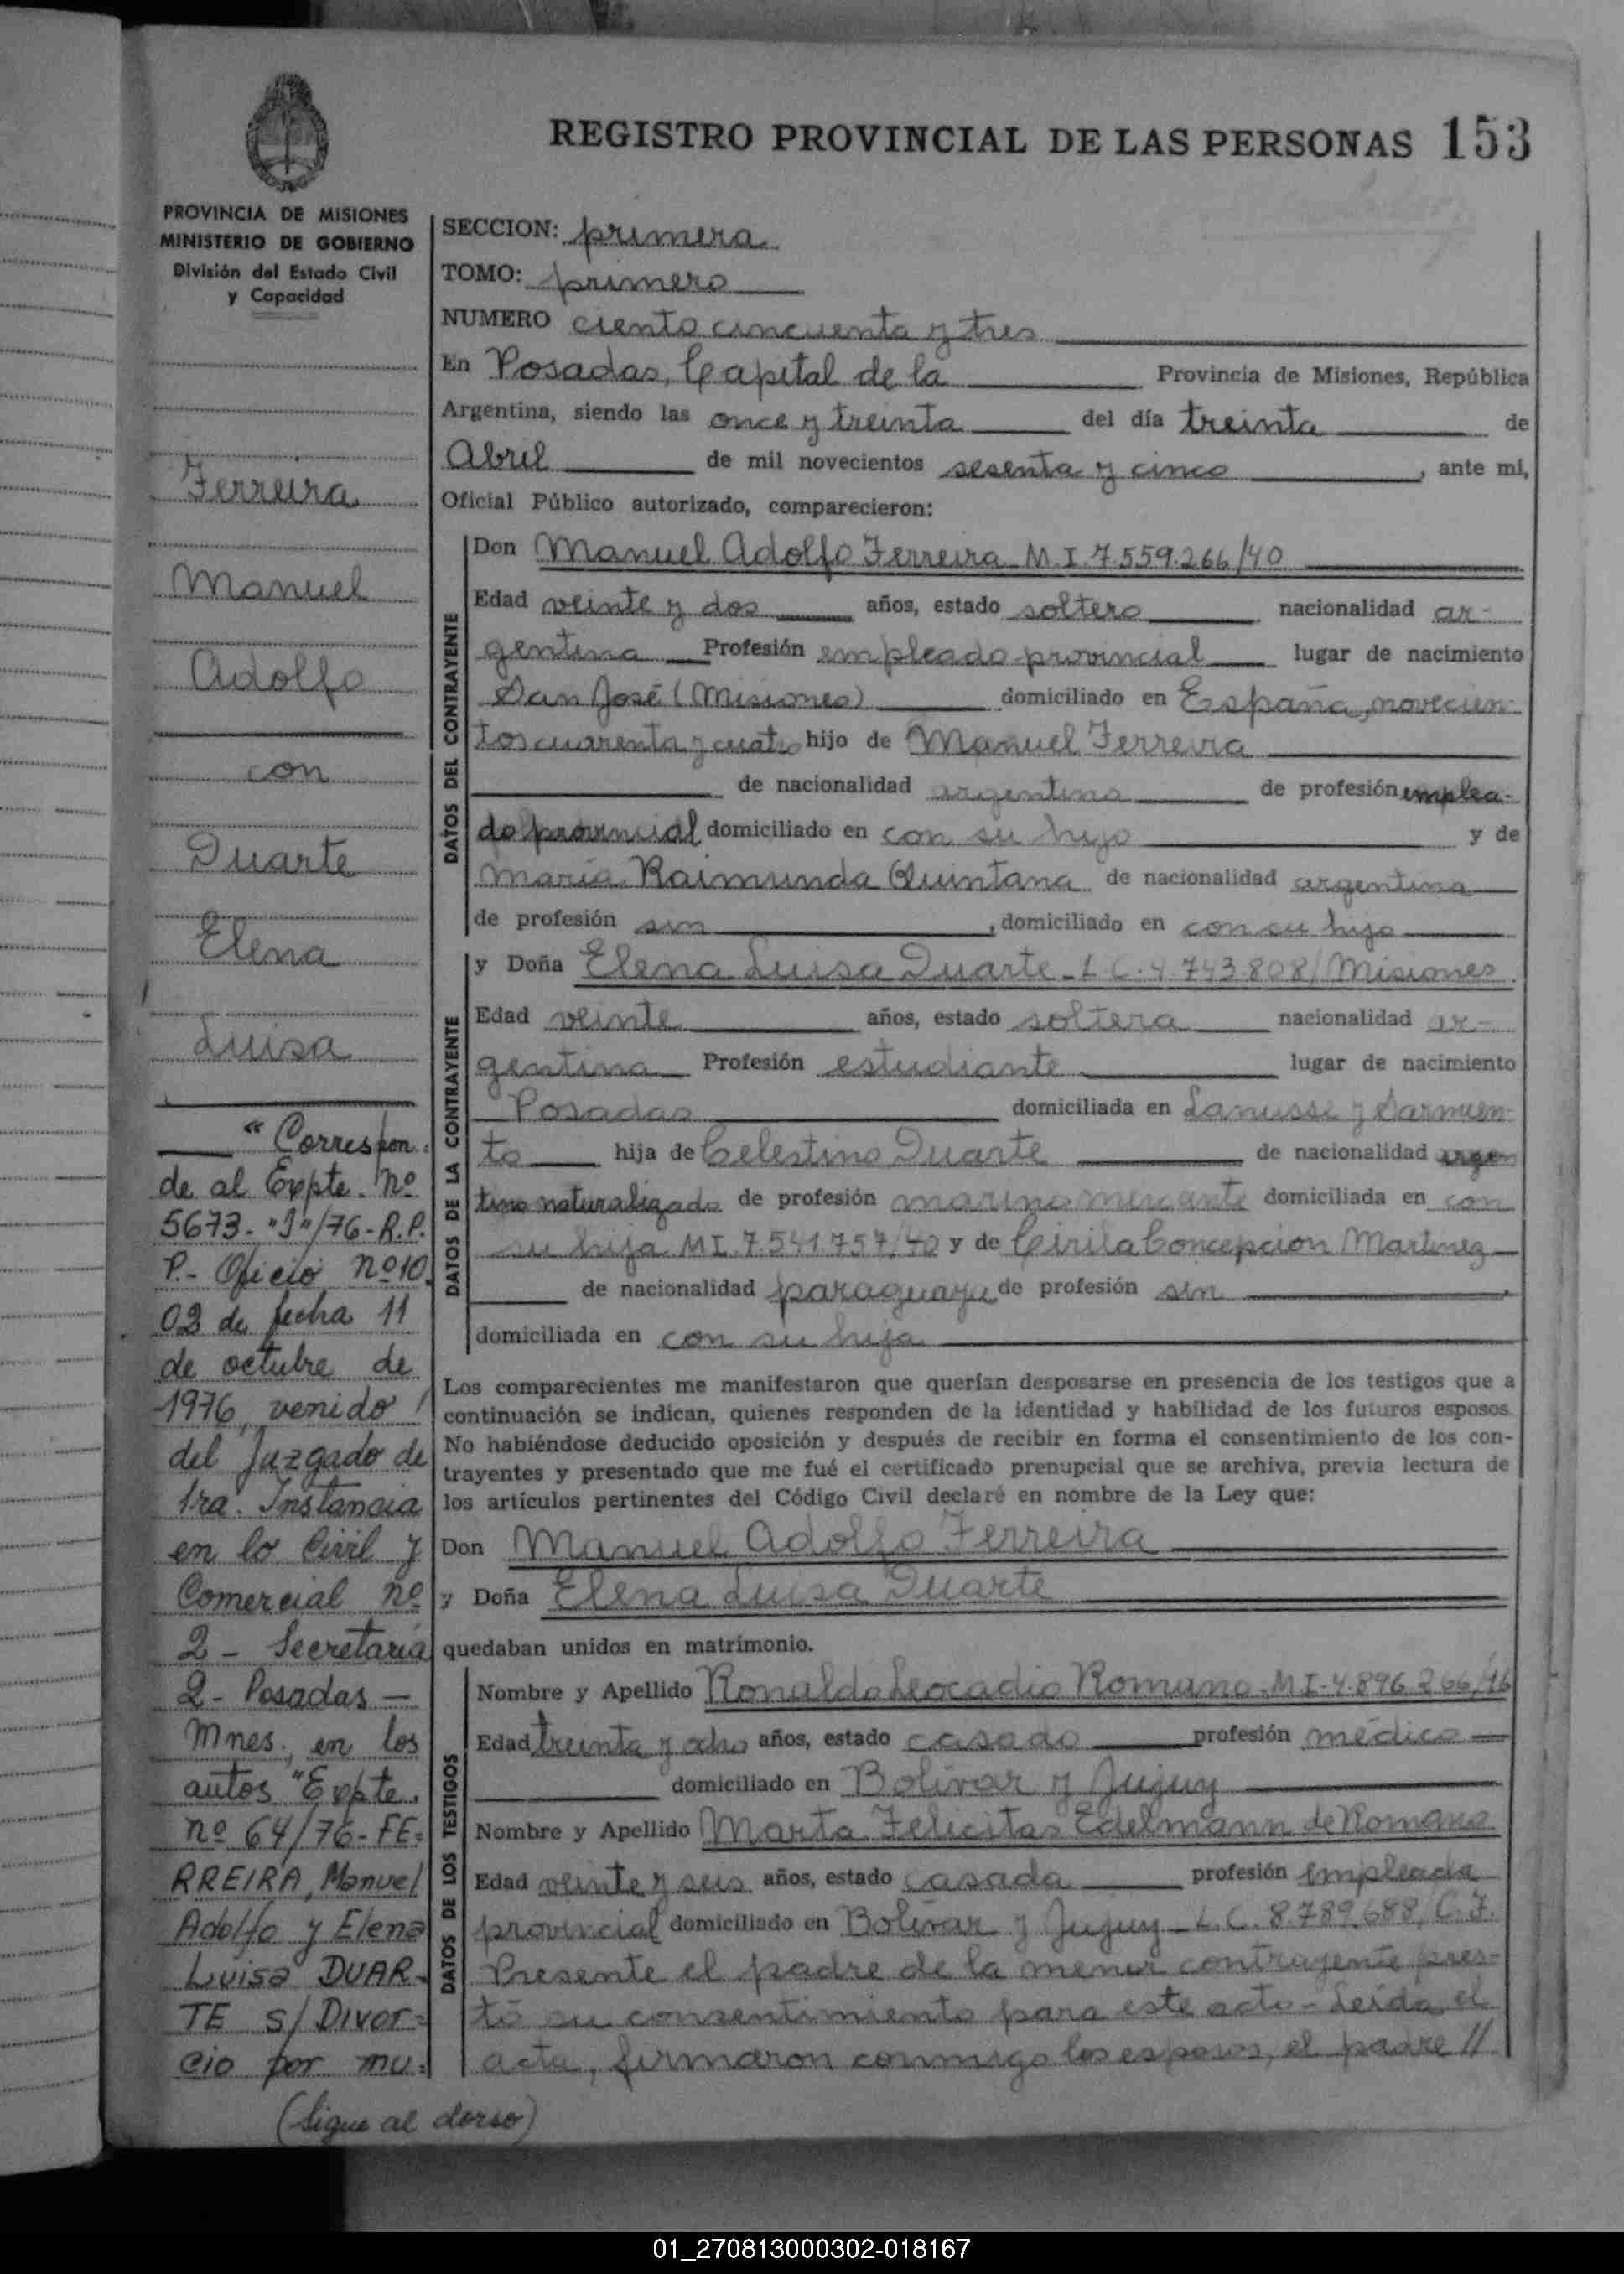 REGISTRO PROVINCIAL DE LAS PERSONAS 153
PROVINCIA DE MISIONES
MINISTERIO DE GOBIERNO
División del Estado Civil
y Capacidad
Ferreira
Manuel
Adolfo
con
Duarte
Elena
Luisa
"Correspon-
de al Expte. nº
5673-"J"/76-R.P.
P.- Oficio nº 10
02 de fecha 11
de octubre de
1976, venido
del Juzgado de
1ra. Instancia
en lo Civil y
Comercial nº
2 - Secretaria
2 - Posadas -
Mnes., en los
autos "Expte.
nº 64/76-FE-
RREIRA, Manuel
Adolfo y Elena
Luisa DUAR-
TE s/ Divor-
cio por mu-
(Sigue al dorso)
SECCION: primera
TOMO: primero
NUMERO ciento cincuenta y tres
En Posadas, Capital de la Provincia de Misiones, República
Argentina, siendo las once y treinta del día treinta de
Abril de mil novecientos sesenta y cinco, ante mi,
Oficial Público autorizado, comparecieron:
DATOS DEL CONTRAYENTE
Don Manuel Adolfo Ferreira M.I. 7.559.266/40
Edad veinte y dos años, estado soltero nacionalidad ar-
gentina Profesión empleado provincial lugar de nacimiento
San José (Misiones) domiciliado en España, novecien-
tos cuarenta y cuatro hijo de Manuel Ferreira
de nacionalidad argentina de profesión emplea-
do provincial domiciliado en con su hijo y de
María Raimunda Quintana de nacionalidad argentina
de profesión sin, domiciliado en con su hijo
DATOS DE LA CONTRAYENTE
y Doña Elena Luisa Duarte - L.C. 4.743.808/Misiones
Edad veinte años, estado soltera nacionalidad ar-
gentina Profesión estudiante lugar de nacimiento
Posadas domiciliada en Lanusse y Sarmien-
to hija de Celestino Duarte de nacionalidad argen
tino naturalizado de profesión marino mercante domiciliada en con
su hija MI. 7.541.757/40 y de Cirila Concepcion Martinez
de nacionalidad paraguaya de profesión sin,
domiciliada en con su hija
Los comparecientes me manifestaron que querían desposarse en presencia de los testigos que a
continuación se indican, quienes responden de la identidad y habilidad de los futuros esposos.
No habiéndose deducido oposición y después de recibir en forma el consentimiento de los con-
trayentes y presentado que me fué el certificado prenupcial que se archiva, previa lectura de
los artículos pertinentes del Código Civil declaré en nombre de la Ley que:
Don Manuel Adolfo Ferreira
y Doña Elena Luisa Duarte
quedaban unidos en matrimonio.
DATOS DE LOS TESTIGOS
Nombre y Apellido Ronaldo Leocadio Romano. MI-4.896.266/16
Edad treinta y ocho años, estado casado profesión médico
domiciliado en Bolívar y Jujuy
Nombre y Apellido Marta Felicitas Edelmann de Romano
Edad veinte y seis años, estado casada profesión empleada
provincial domiciliado en Bolívar y Jujuy - L.C. 8.789.688, C.F.
Presente el padre de la menor contrayente pres-
tó su consentimiento para este acto - Leída el
acta, firmaron conmigo los esposos, el padre //
01_270813000302-018167